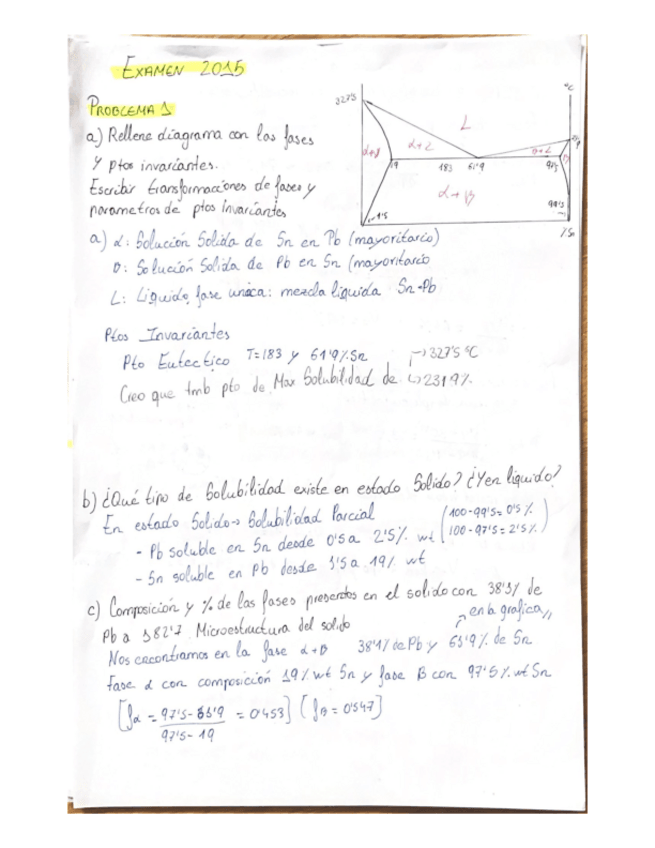 EXAMEN 2015
PROBLEMA 1
a) Rellene diagrama con las fases
y ptos invariantes.
Escribir transformaciones de fases y
parametros de ptos Invariantes
327'5
°C
L
α+L
19
183
61'9
α+β
1'5
%Sn
a) α: Solución Solida de Sn en Pb (mayoritario)
β: Solución Solida de Pb en Sn (mayoritario
L: Liquido, fase unica: mezcla liquida Sn-Pb
Ptos Invariantes
Pto Eutectico T=183 y 61'9% Sn
→ 327'5 °C
Creo que tmb pto de Max Solubilidad de → 231,9%
b) ¿Qué tipo de Solubilidad existe en estado Solido? ¿Y en liquido?
En estado Solido → Solubilidad Parcial
- Pb soluble en Sn desde 0'5 a 2'5% wt
(100-99'5=0'5%
100-97'5=2'5%)
- Sn soluble en Pb desde 1'5 a 19% wt
c) Composición y % de las fases presentes en el solido con 38'1% de
Pb a 182'7. Microestructura del solido
en la grafica,,
Nos encontramos en la fase α+β 38'1% de Pb y 61'9% de Sn
Fase α con composición 19% wt Sn y fase β con 97'5% wt Sn
[fα = 97'5-61'9 / 97'5-19 = 0'453] (fβ = 0'547]